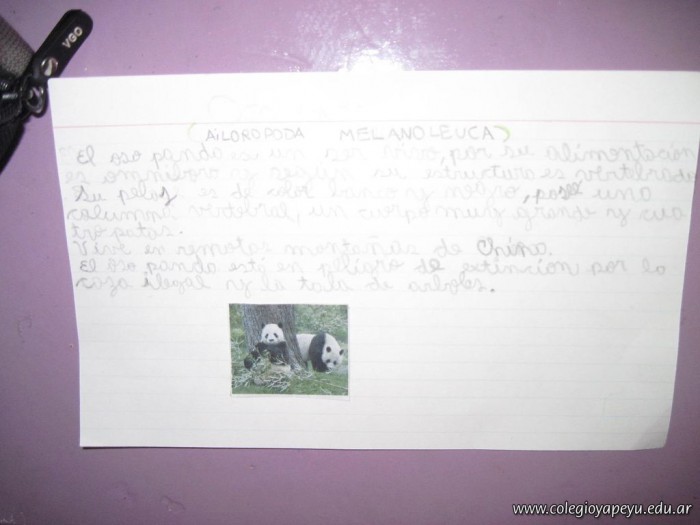 VGO
AiLOROPODA MELANOLEUCA
El oso panda es un ser vivo, por su alimentación
es omnivoro y según su estructura es vertebrado
Su pelaje es de color blanco y negro, posee una
columna vertebral, un cuerpo muy grande y cua
tro patas.
Vive en remotas montañas de China.
El oso panda está en peligro de extincion por la
caza ilegal y la tala de arboles.
www.colegioyapeyu.edu.ar